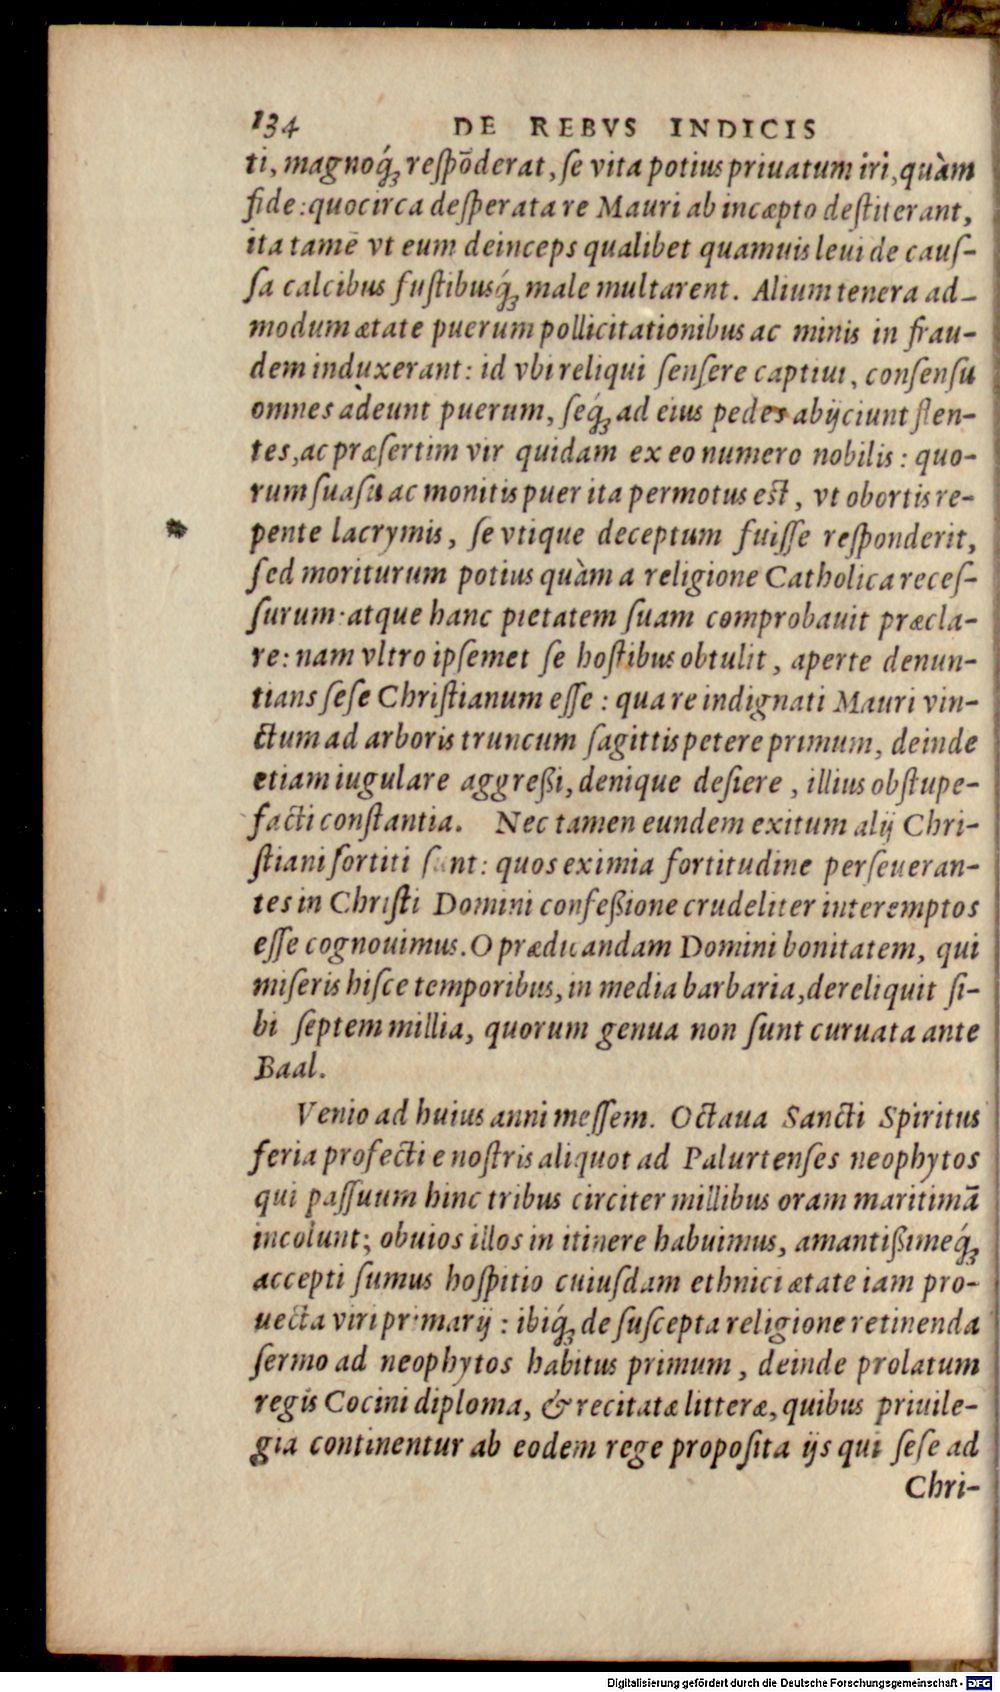 134 DE REBVS INDICIS
ti, magnoq́ꝫ respōderat, se vita potius priuatum iri, quàm
fide: quocirca desperata re Mauri ab incæpto destiterant,
ita tamē vt eum deinceps qualibet quamuis leui de caus-
sa calcibus fustibusq́ꝫ male multarent. Alium tenera ad-
modum ætate puerum pollicitationibus ac minis in frau-
dem induxerant: id vbi reliqui sensere captiui, consensu
omnes adeunt puerum, seq́ꝫ ad eius pedes abijciunt flen-
tes, ac præsertim vir quidam ex eo numero nobilis: quo-
rum suasu ac monitis puer ita permotus est, vt obortis re-
pente lacrymis, se vtique deceptum fuisse responderit,
sed moriturum potius quàm a religione Catholica reces-
surum: atque hanc pietatem suam comprobauit præcla-
re: nam vltro ipsemet se hostibus obtulit, aperte denun-
tians sese Christianum esse: qua re indignati Mauri vin-
ctum ad arboris truncum sagittis petere primum, deinde
etiam iugulare aggreßi, denique desiere, illius obstupe-
facti constantia. Nec tamen eundem exitum alij Chri-
stiani sortiti sunt: quos eximia fortitudine perseueran-
tes in Christi Domini confeßione crudeliter interemptos
esse cognouimus. O prædicandam Domini bonitatem, qui
miseris hisce temporibus, in media barbaria, dereliquit si-
bi septem millia, quorum genua non sunt curuata ante
Baal.
Venio ad huius anni messem. Octaua Sancti Spiritus
feria profecti e nostris aliquot ad Palurtenses neophytos
qui passuum hinc tribus circiter millibus oram maritimā
incolunt; obuios illos in itinere habuimus, amantißimeq́ꝫ
accepti sumus hospitio cuiusdam ethnici ætate iam pro-
uecta viri primarij: ibiq́ꝫ de suscepta religione retinenda
sermo ad neophytos habitus primum, deinde prolatum
regis Cocini diploma, & recitatæ litteræ, quibus priuile-
gia continentur ab eodem rege proposita ijs qui sese ad
Chri-
Digitalisierung gefördert durch die Deutsche Forschungsgemeinschaft - DFG